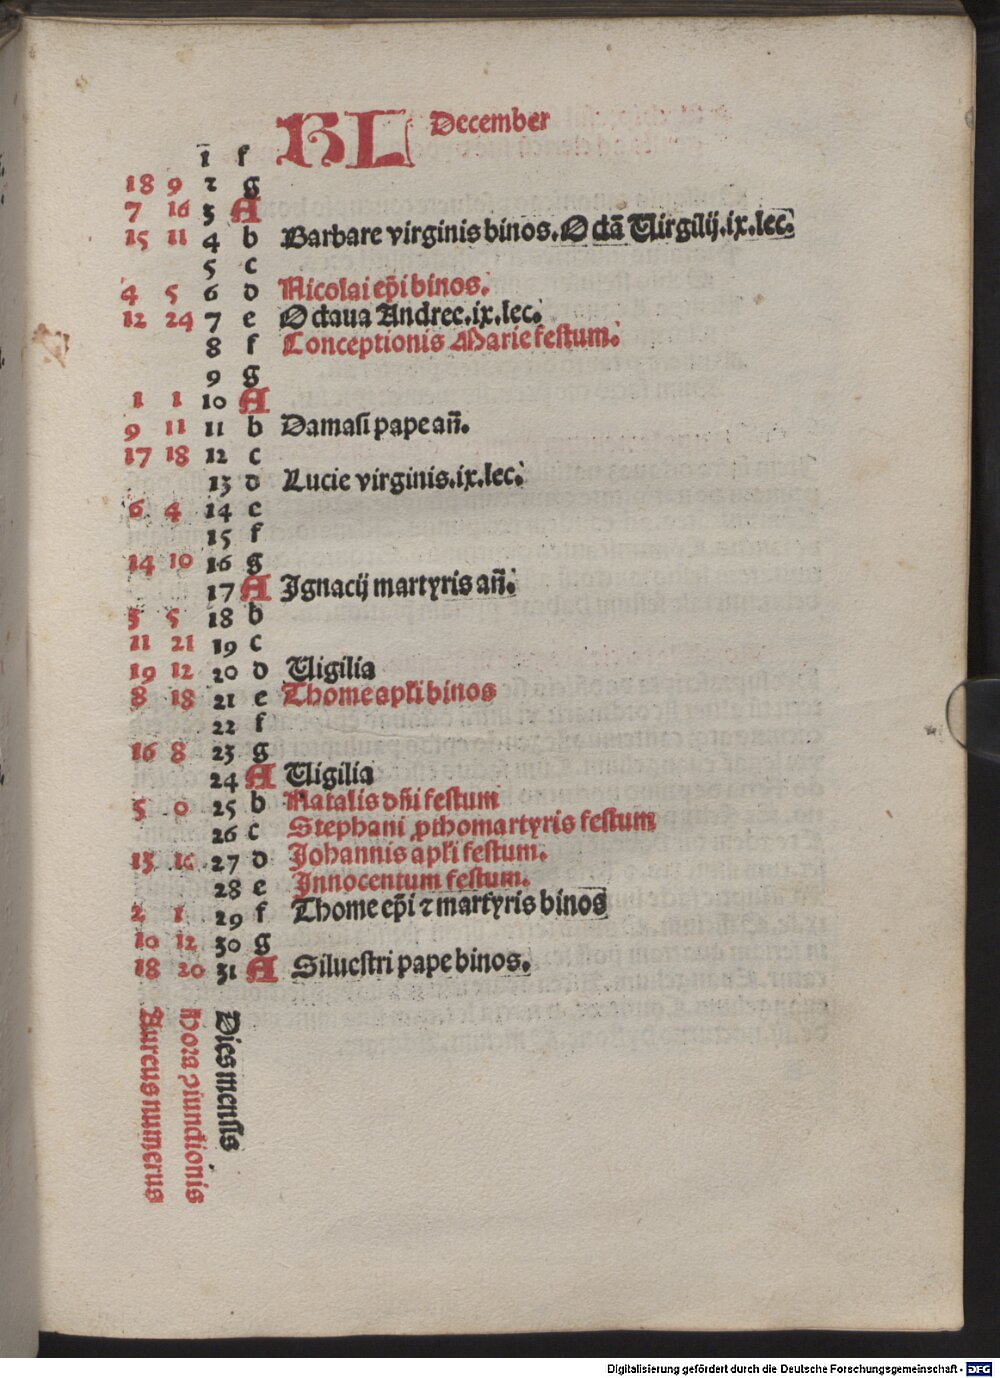 KL December
1 f
18 9 2 g
7 16 3 A
15 11 4 b Barbare virginis binos. Octā Virgilij. ix. lec.
5 c
4 5 6 d Nicolai ep̄i binos.
12 24 7 e Octaua Andree. ix. lec.
8 f Conceptionis Marie festum.
9 g
1 1 10 A
9 11 11 b Damasi pape an̄.
17 18 12 c
13 d Lucie virginis. ix. lec.
6 4 14 e
15 f
14 10 16 g
17 A Ignacij martyris an̄.
3 5 18 b
11 21 19 c
19 12 20 d Vigilia
8 18 21 e Thome apl̄i binos
22 f
16 8 23 g
24 A Vigilia
5 0 25 b Natalis dn̄i festum
26 c Stephani ꝓthomartyris festum
13 16 27 d Johannis apl̄i festum.
28 e Innocentum festum.
2 1 29 f Thome ep̄i ⁊ martyris binos
10 12 30 g
18 20 31 A Siluestri pape binos.
Aureus numerus
Hora ꝯiunctionis
Dies mensis
Digitalisierung gefördert durch die Deutsche Forschungsgemeinschaft - DFG